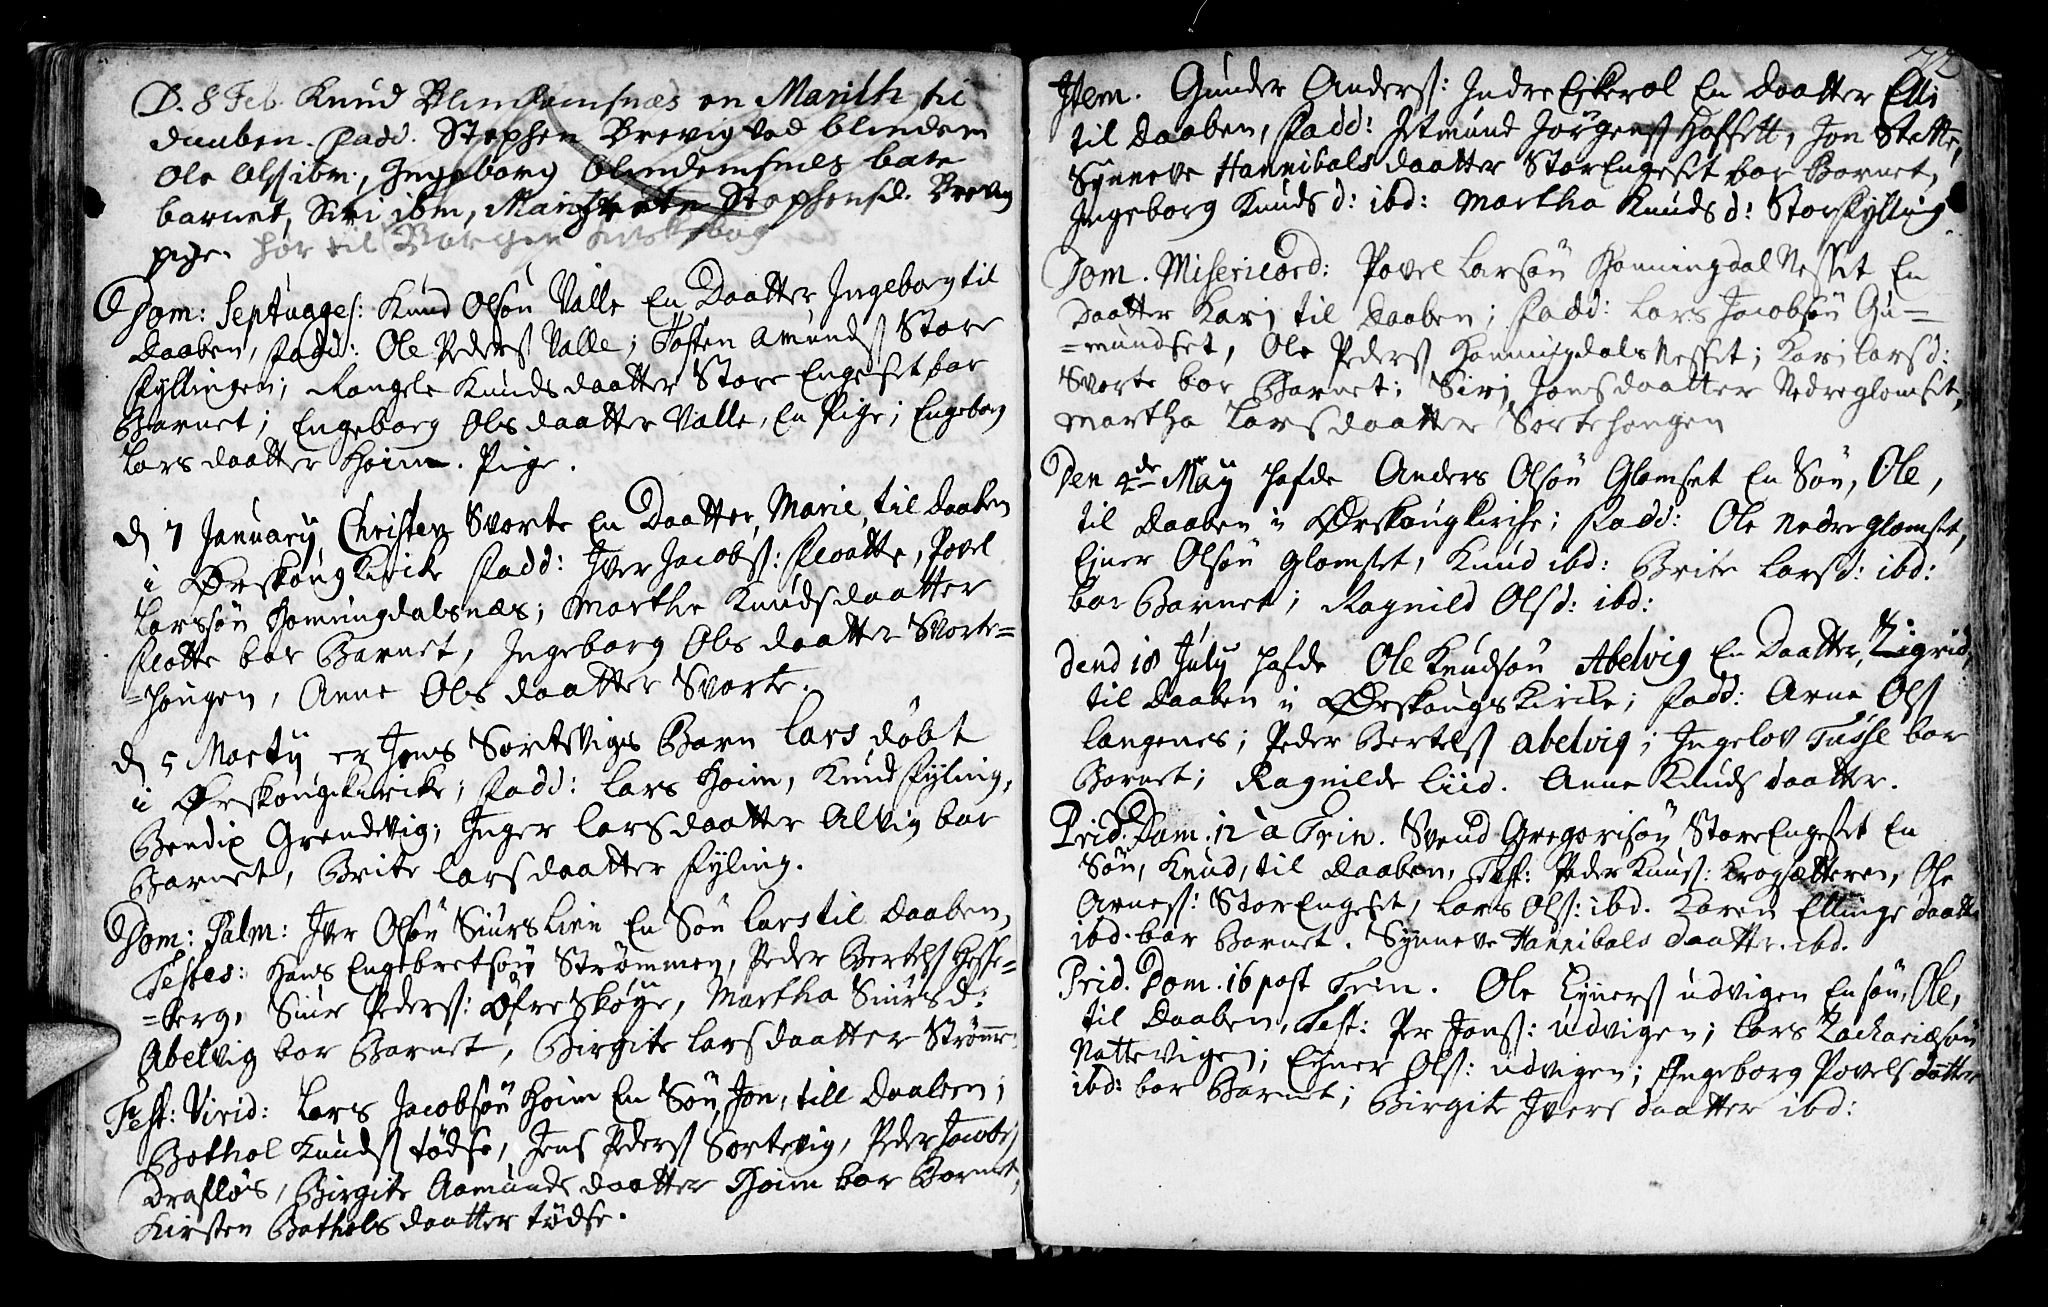 D. 8 Feb. Knud Blindemsnæs en Marith til
daaben. Fadd. Stephen Brevig Vad blindem
Ole Olss ibm:, Ingeborg blindemsnæs bare
barnet, Siri ibm, Margrete Stephensd. Brevig
pige. hør til Borgen
Dom: Septuages: Knud Olsøn Valle En Daatter Ingeborg til
Daaben, Fadd: Ole Peders Valle; Tosten Amunds Store
Fyllingen; Rangle Knudsdaatter Store Engeset bar
Barnet; Engeborg Olsdaatter Valle, En Pige; Engeborg
Larsdaatter Hoim. Pige.
d 7 January Christen Svorte En Daatter, Marie, til Daaben
i Ørskougkirke Fadd: Iver Jacobs: Flaatte, Povel
Larssøn Honingdalsnæs; Marthe Knudsdaatter
Flotte bar Barnet, Ingeborg Olsdaatter Svorte=
=hougen, Anne Olsdaatter Svorte.
d 5 Marty er Jens Sortevigs Barn Lars døbt
i Ørskougkirke; Fadd: Lars Hoim, Knud Fyling,
Bendix Grendvig; Inger Larsdaatter Alvig bar
Barnet, Brite Larsdaatter Fyling.
Dom: Palm: Iver Olsøn Siurslien En Søn Lars til Daaben,
Testes: Hans Engebretsøn Strømmen, Peder Bertels Hesse=
=berg, Siur Peders: Øfre Skoye, Martha Siursd:
Abelvig bar Barnet, Birgite Larsdaatter Strømm:
Fest: Virid: Lars Jacobsøn Hoim En Søn, Jon, till Daaben;
Bothol Knuds tødse, Jens Peders Sortevig, Peder Jacobs
Drafløs, Birgite Aamundsdaatter Hoim bar Barnet,
Kirsten Botholsdaatter tødse.
72
Item. Gunder Anders: Indre Eskerol En Daatter Elli
til Daaben, Fadd: Istmund Jørgens Hoffsett, Jon Stette,
Synneve Hannibalsdaatter StorEngeset bar Barnet,
Ingeborg Knudsd: ibd: Martha Knudsd: Storfylling
Dom. Misericord: Povel Larsøn Honningdal Nesset En
Daatter Kari til Daaben; Fadd: Lars Jacobsøn Gu=
=mundset, Ole Peders Honningdals Nesset; Kari Larsd:
Svorte bar Barnet; Siri Jonsdaatter Nedreglomset,
Martha Larsdaatter Sortehougen
Den 4de May hafde Anders Olsøn Glomset En Søn, Ole,
til Daaben i Ørskougkirke; Fadd: Ole Nedreglomset,
Ejner Olsøn Glomset, Knud ibd: Brite Larsd: ibd:
bar Barnet; Ragnild Olsd: ibd:
dend 18 July hafde Ole Knudsøn Abelvig En Daatter, Zigrid,
til Daaben i Ørskougskirke; Fadd: Arne Ols
Langenes; Peder Bertels Abelvig; Ingelov Tusse bar
Barnet; Ragnilde Liid. Anne Knudsdaatter.
Prid. Dom. 12 a Trin. Svend Gregorisøn StoreEngeset En
Søn, Knud, til Daaben, Test: Peder Knuds: Krogsætteren, Ole
Arness: StorEngeset, Lars Ols: ibd. Karen Ellingsdaatter
ibd. bar Barnet. Synneve Hannibalsdaatter. ibd.
Prid. Dom. 16 post Trin. Ole Eyners udvigen En søn, Ole,
til Daaben, Test: Per Jons: udvigen; Lars Zachariæsøn
Nattevigen; Eyner Ols: udvigen; Ingeborg Povelsdatter
ibd: bar Barnet; Birgite Iversdaatter ibd: